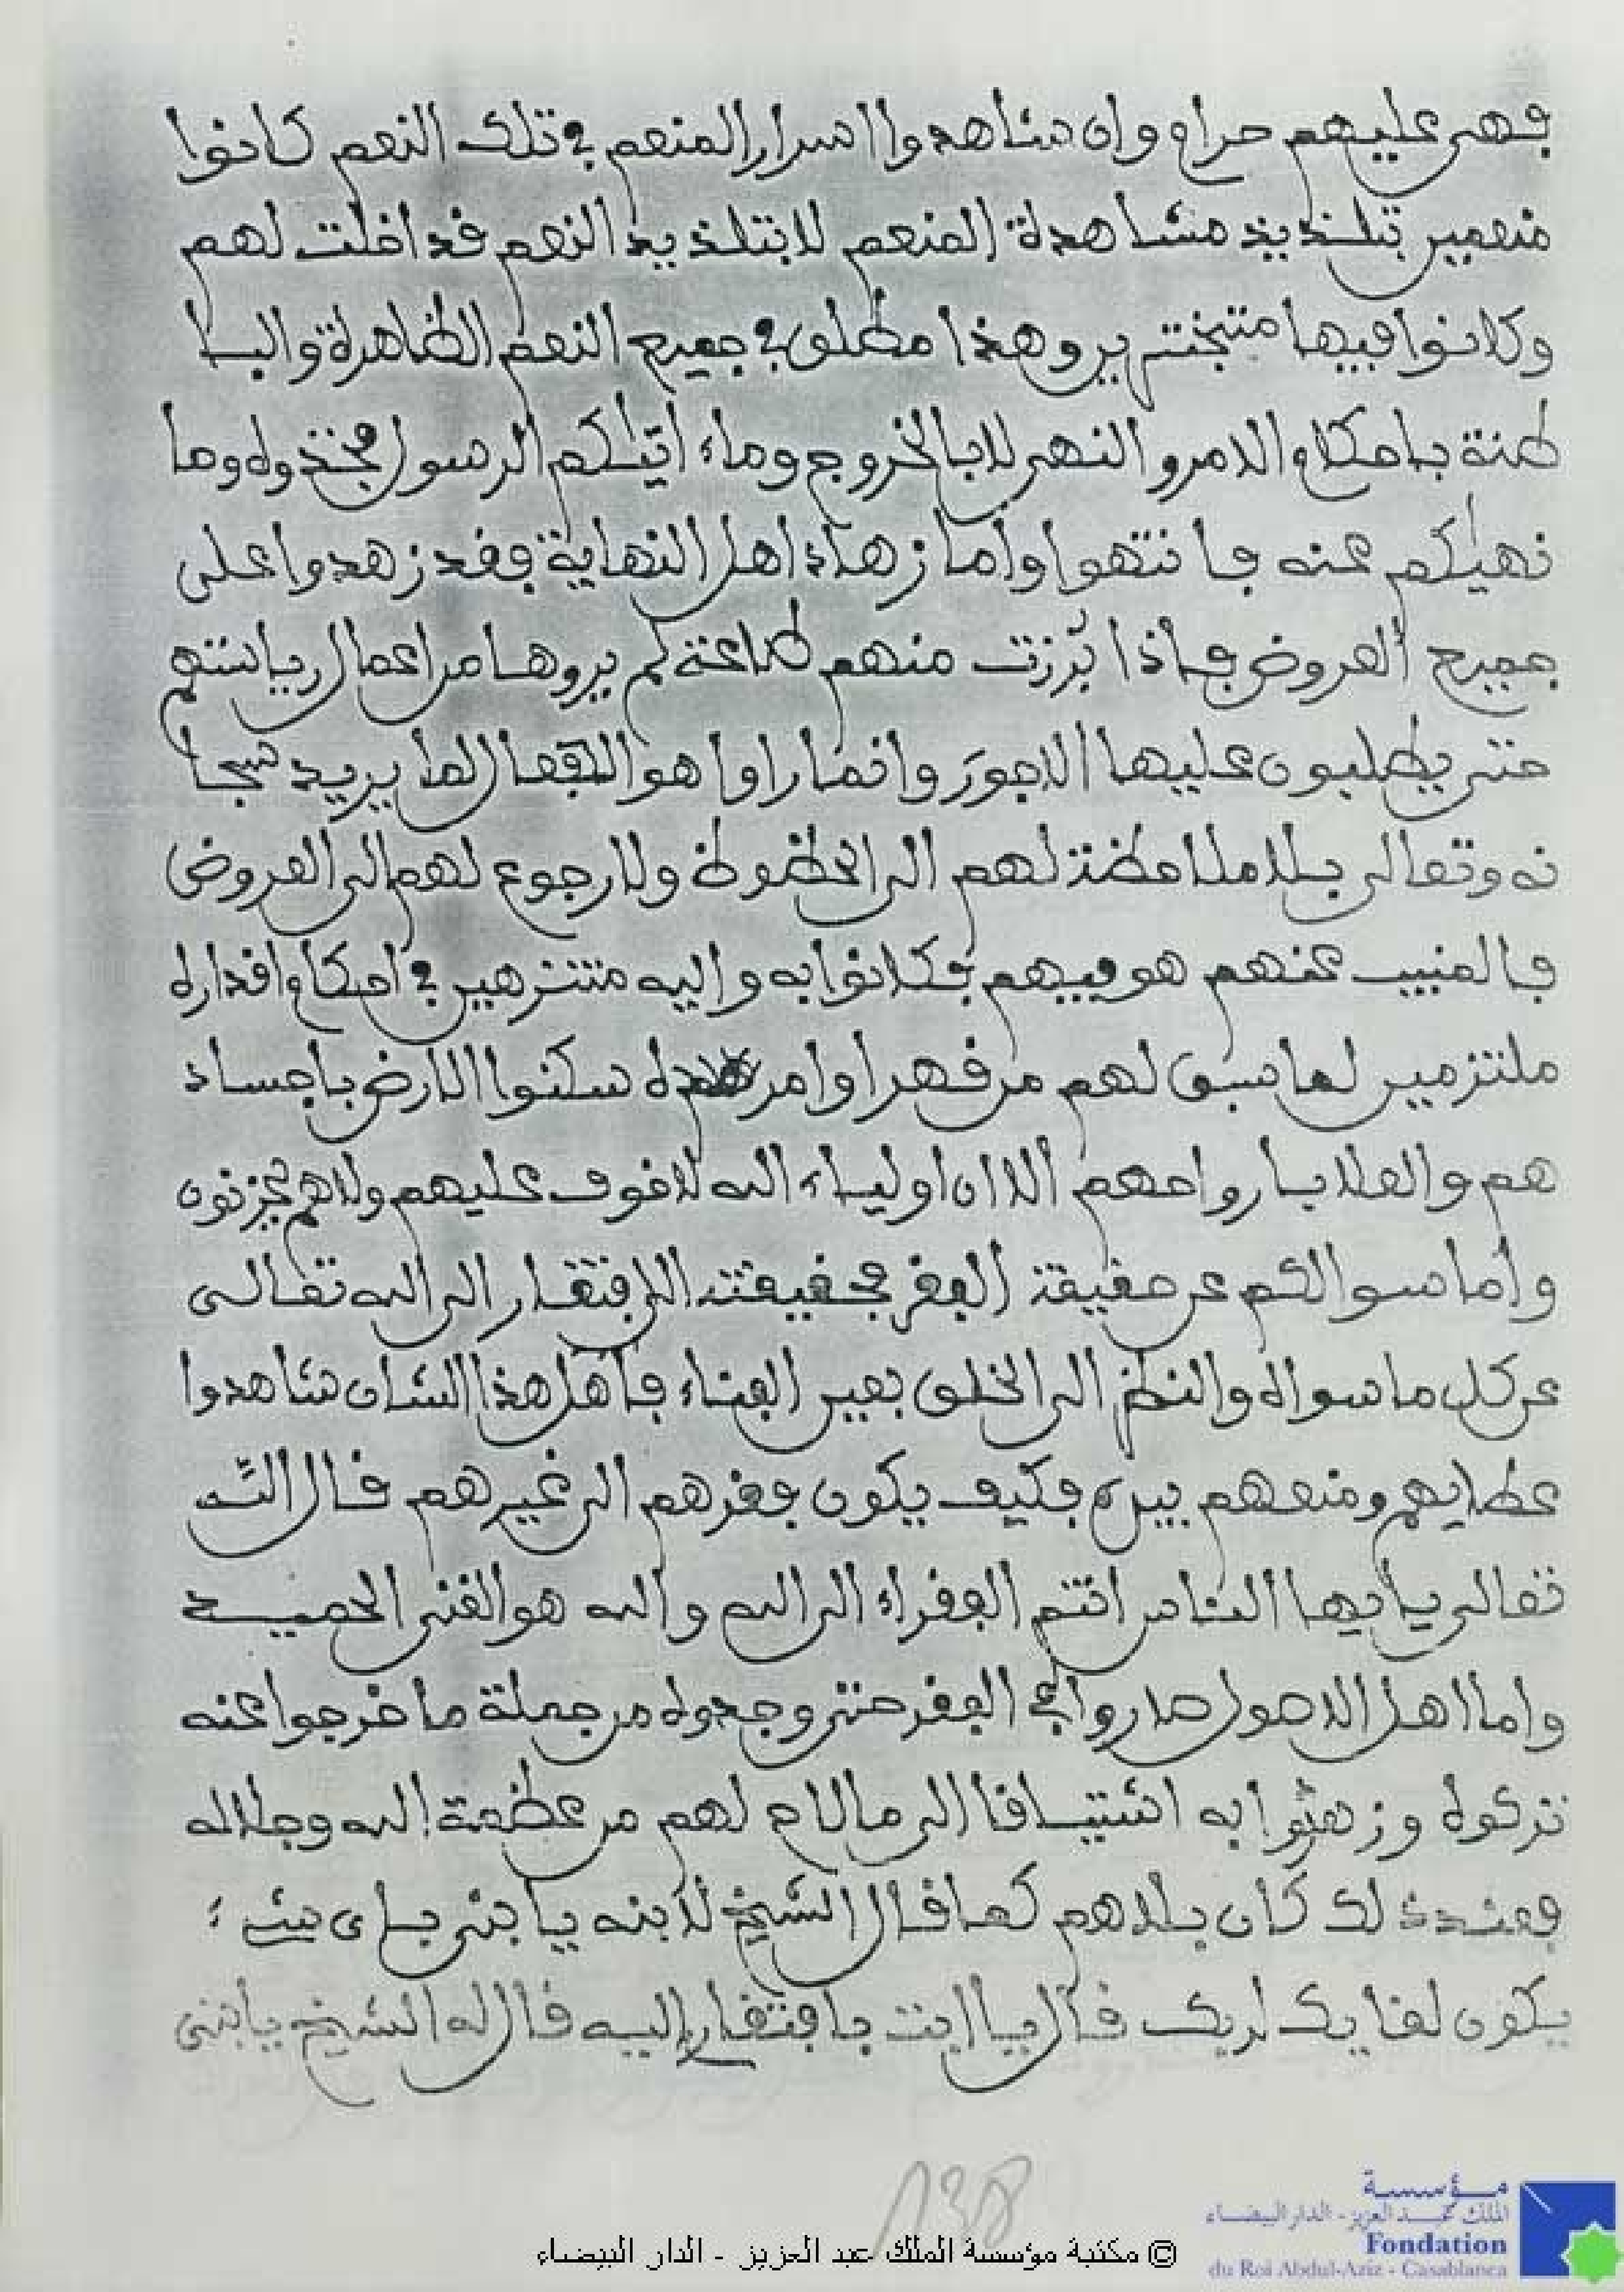 فهي عليهم حرام وان شاهدوا اسرار المنعم في تلك النعم كانوا
منعمين بتلذيذ مشاهدة المنعم لا بتلذيذ النعم قد احلت لهم
وكانوا فيها متبخترين وهذا مطلق في جميع النعم الظاهرة والبا
طنة باحكام الامر والنهي لا بالخروج وما ءاتيكم الرسول فخذوه وما
نهيكم عنه فانتهوا واما زهاد اهل النهاية فقد زهدوا على
جميع العروض فاذا برزت منهم طاعة لم يروها من اعمال رياستهم
حتى يطلبون عليها الاجور وانما راوا هو الفعال لما يريد سبحا
نه وتعالى بلا ملاحظة لهم الى الحظوظ ولا رجوع لهم الى العروض
فالمغيب عنهم هو فيهم فكانوا به واليه متنزهين في احكام اقداره
ملتزمين لما سبق لهم من قهر اوامره سكنوا الارض باجساد
هم والعلا بارواحهم الا ان اولياء الله لا خوف عليهم ولا هم يحزنون
واما سوالكم عن حقيقة الفقر فحقيقته الافتقار الى الله تعالى
عن كل ما سواه والنظر الى الخلق بعين الفناء فاهل هذا الشان شاهدوا
عطايهم ومنعهم بيده فكيف يكون فقرهم الى غيرهم قال الله
تعالى يايها الناس انتم الفقراء الى الله والله هو الغني الحميد
واما اهل الاصول صاروا في الفقر حتى وجدوه من جملة ما خرجوا عنه
تركوه وزهدوا به اشتياقا الى ما لاح لهم من عظمة الله وجلاله
فعند ذلك كان بلاهم كما قال الشيخ لابنه يا بني باي شيء
يكون لقايك لربك قال يا ابت بافتقاري اليه قال له الشيخ يا بني
138
© مكتبة مؤسسة الملك عبد العزيز - الدار البيضاء
مؤسسة
الملك عبد العزيز - الدار البيضاء
Fondation
du Roi Abdul-Aziz - Casablanca